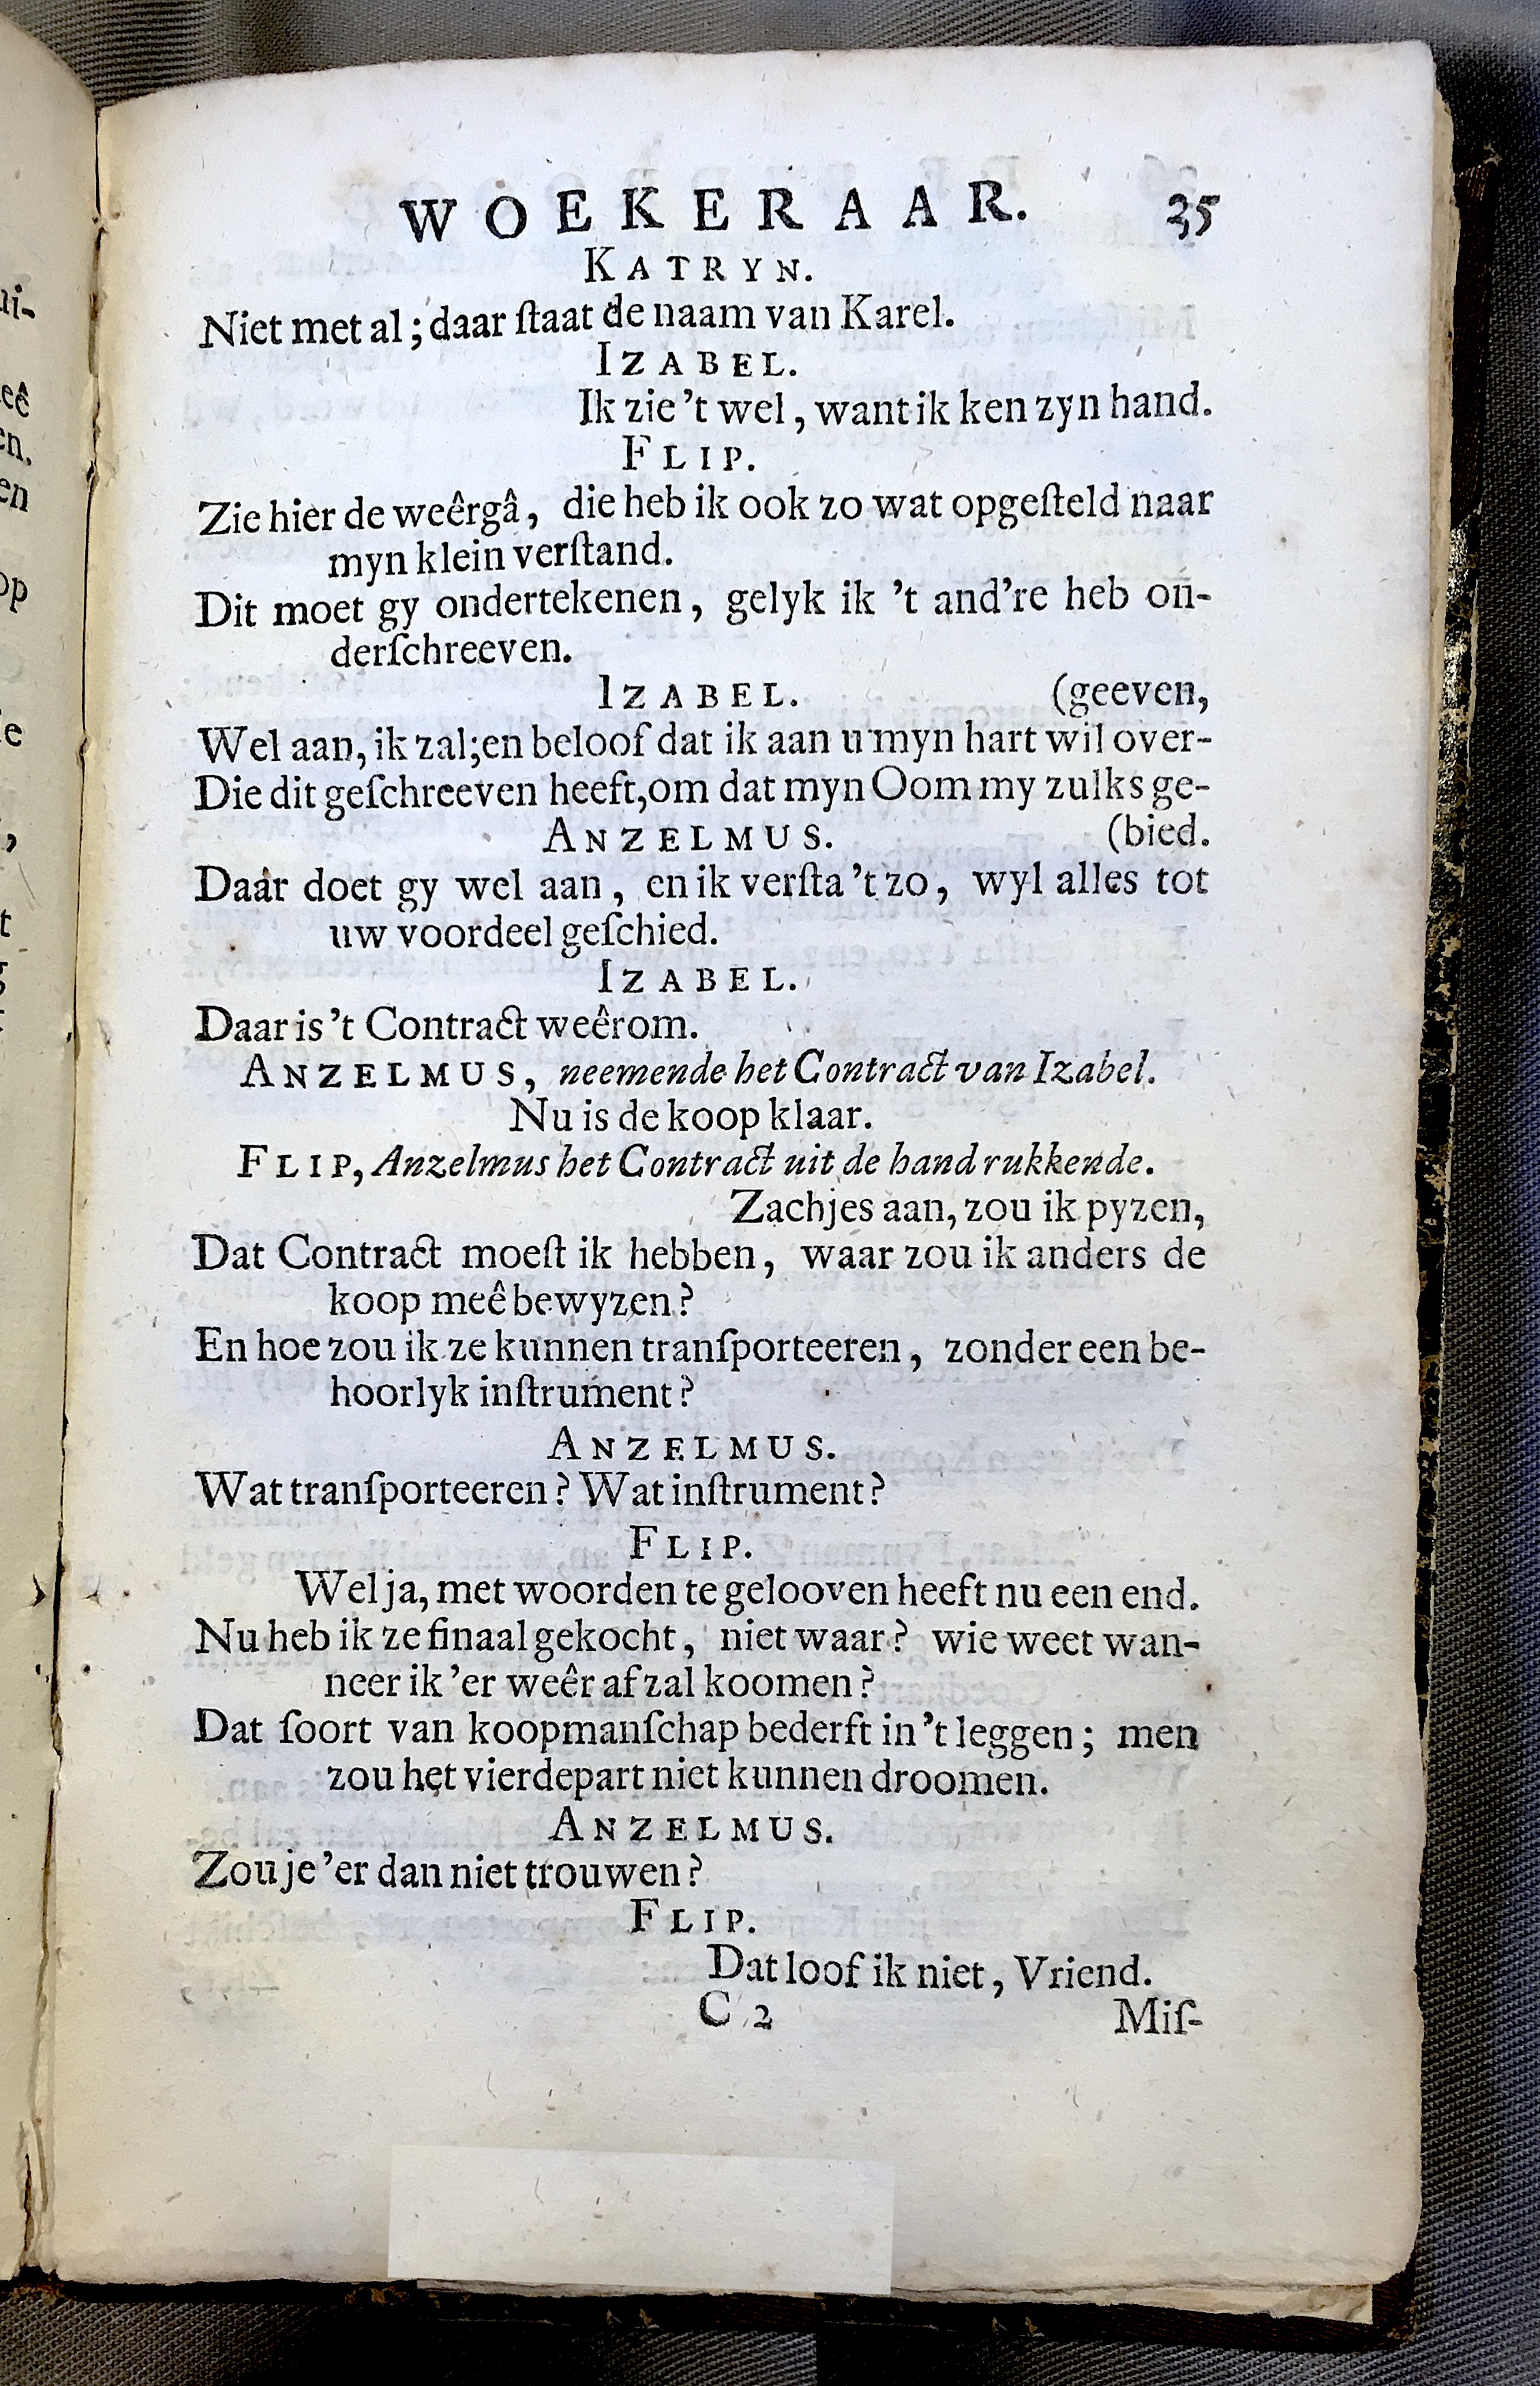 WOEKERAAR. 35
KATRYN.
Niet met al; daar ſtaat de naam van Karel.
IZABEL.
Ik zie 't wel, want ik ken zyn hand.
FLIP.
Zie hier de weêrgâ, die heb ik ook zo wat opgeſteld naar
myn klein verſtand.
Dit moet gy ondertekenen, gelyk ik 't and're heb on-
derſchreeven.
IZABEL. (geeven,
Wel aan, ik zal; en beloof dat ik aan u myn hart wil over-
Die dit geſchreeven heeft, om dat myn Oom my zulks ge-
ANZELMUS. (bied.
Daar doet gy wel aan, en ik verſta 't zo, wyl alles tot
uw voordeel geſchied.
IZABEL.
Daar is 't Contract weêrom.
ANZELMUS, neemende het Contract van Izabel.
Nu is de koop klaar.
FLIP, Anzelmus het Contract uit de hand rukkende.
Zachjes aan, zou ik pyzen,
Dat Contract moeſt ik hebben, waar zou ik anders de
koop meê bewyzen?
En hoe zou ik ze kunnen tranſporteeren, zonder een be-
hoorlyk inſtrument?
ANZELMUS.
Wat tranſporteeren? Wat inſtrument?
FLIP.
Wel ja, met woorden te gelooven heeft nu een end.
Nu heb ik ze finaal gekocht, niet waar? wie weet wan-
neer ik 'er weêr af zal koomen?
Dat ſoort van koopmanſchap bederft in 't leggen; men
zou het vierdepart niet kunnen droomen.
ANZELMUS.
Zou je 'er dan niet trouwen?
FLIP.
Dat loof ik niet, Vriend.
C 2 Miſ-